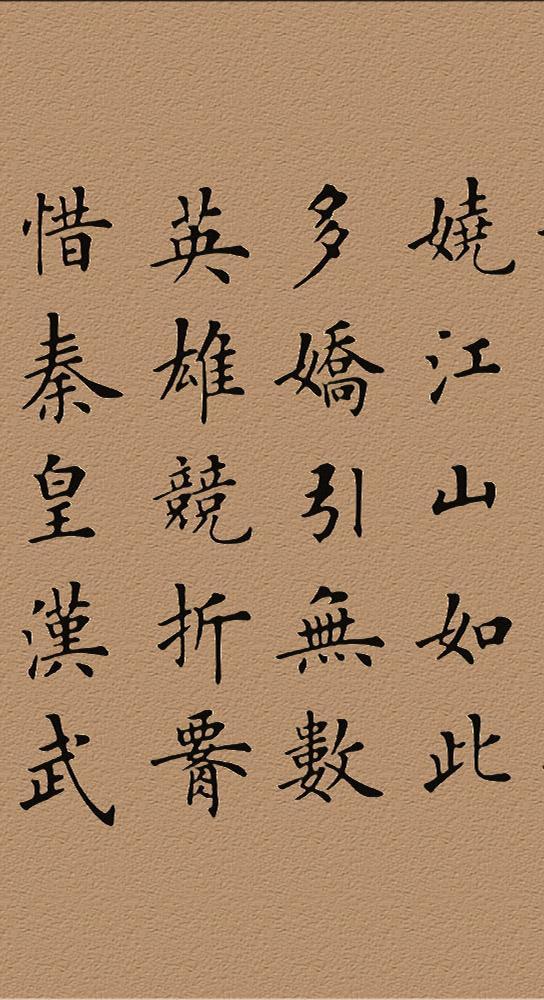 嬈江山如此
多嬌引無數
英雄競折腰
惜秦皇漢武